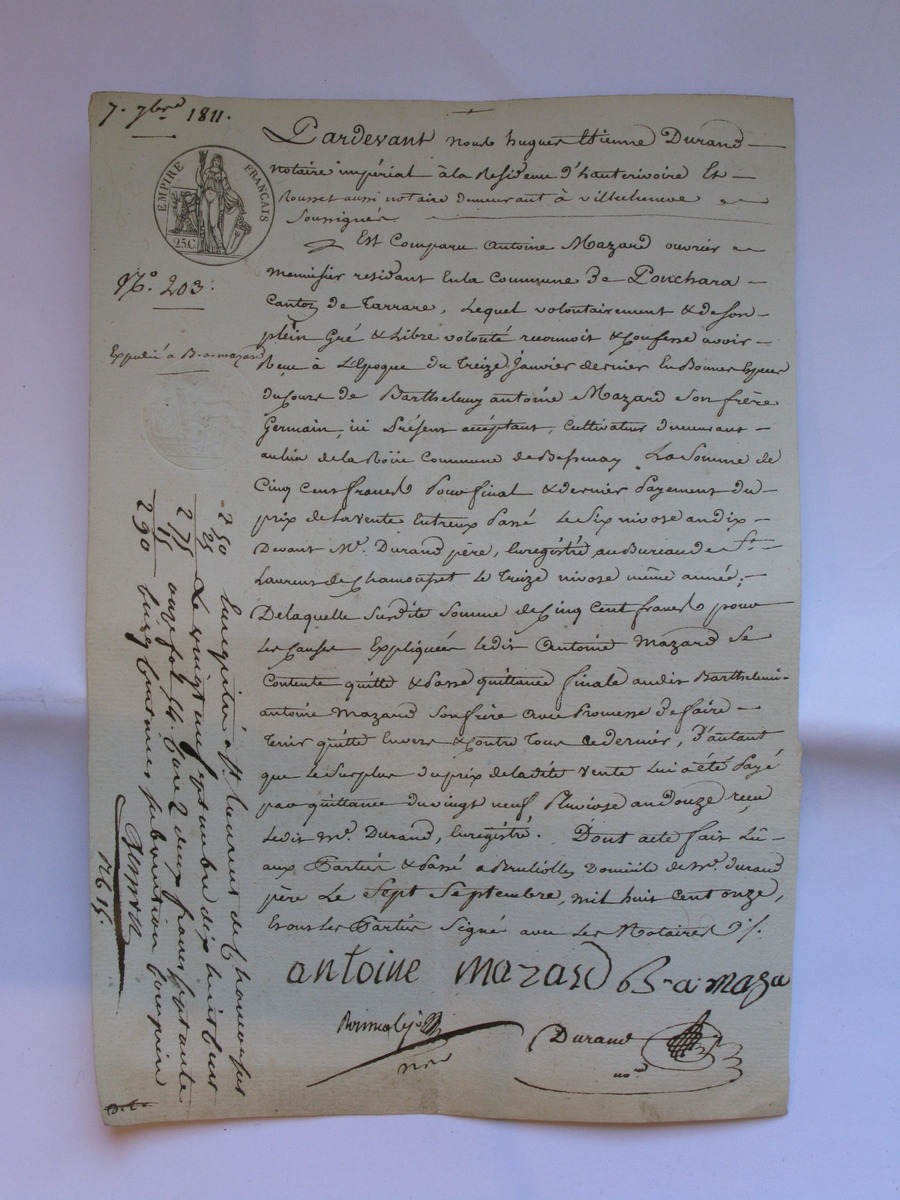 7. 7bre 1811.
EMPIRE FRANÇAIS
25C
N°. 203.
Expédié à B. a. mazard
Pardevant nous hugues Etienne Durand
notaire impérial à la Residence d'hauterivoire Et
Rousset aussi notaire demeurant à villecheneve
Soussignés.
Est Comparu Antoine Mazard ouvrier
menuisier residant En la Commune de Pontchara
Canton de Tarrare, Lequel volontairement & de Son
plein Gré & Libre volonté reconnoit & Confesse avoir
Reçu à L'Epoque du Treize Janvier dernier En Bonnes Especes
du Cours de Barthelemy antoine Mazard Son frère
Germain, ici Présent acceptant, Cultivateur demeurant
au lieu de la Commune de Bessenay, La Somme de
Cinq Cent francs Pour final & dernier Payement du
prix de La vente Entreux Passé Le Six nivose an dix
Devant Me. Durand père, Enregistré au Bureau de St.
Laurent de Chamousset Le Treize nivose même année;
De laquelle Susdite Somme de Cinq Cent francs pour
Les Causes Expliquées Ledit Antoine Mazard Se
Contente quitte & Passe quittance finale audit Barthelemi
antoine Mazard Son frère avec Promesse de faire
Tenir quitte Envers & Contre Tous Ce dernier, D'autant
que Le Surplus du prix de ladite vente Lui a été Payé
par quittance du vingt neuf Pluviose an Douze reçu
Ledit Me. Durand, Enregistré. Dont acte fait Lû
aux Parties & Passé a Brullioles Domicile de Me. durand
père Le Sept Septembre, mil huit Cent onze,
Et ont Les Parties Signé avec Les Notaires ./.
antoine mazard B a maza
Durand
nore
no.re
Enregistré à St. Laurent de Chamousset
Le vingt un Septembre dix huit Cent
onze fol. 54 Case 2 deux francs Septante
Cinq Centimes Subvention Comprise
2 50
25
2 75
15
2 90
126 15.